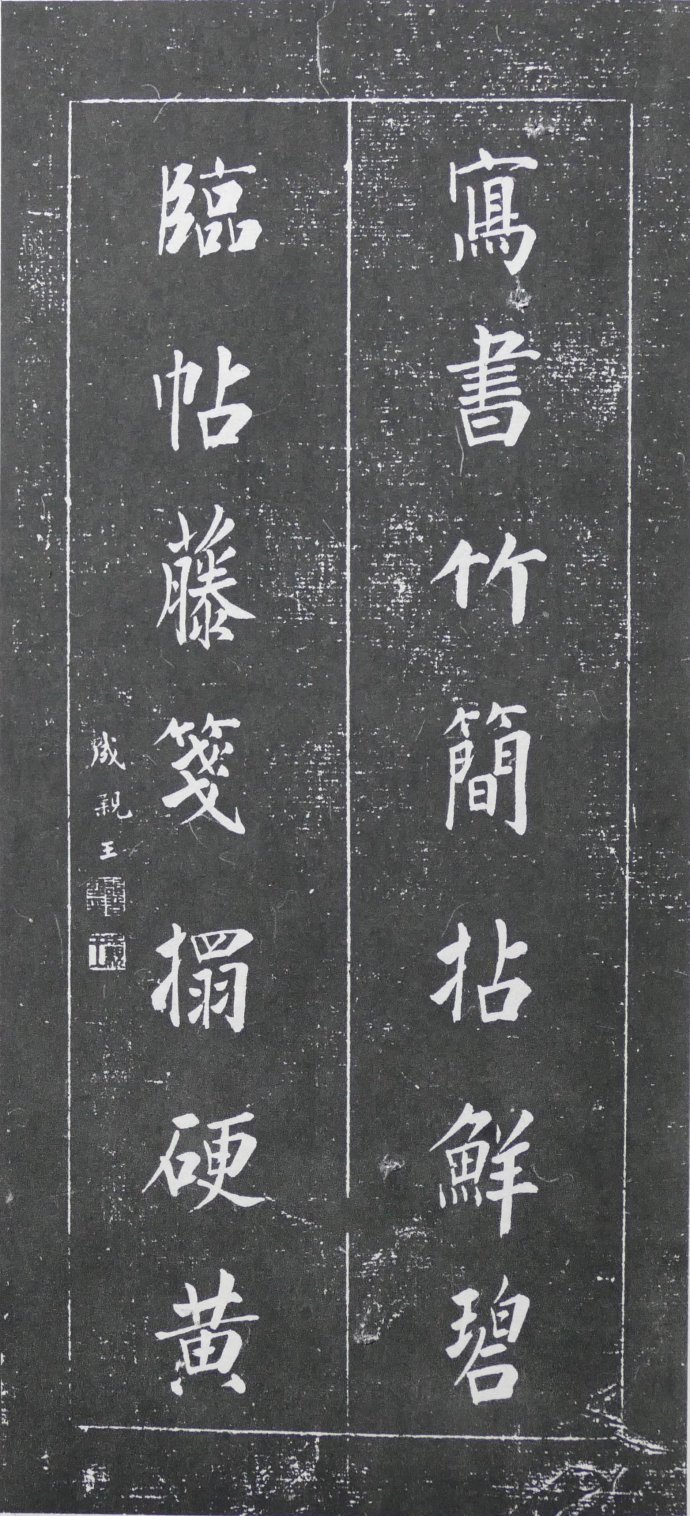 寫書竹簡拈鮮碧
臨帖藤箋搨硬黃
成親王